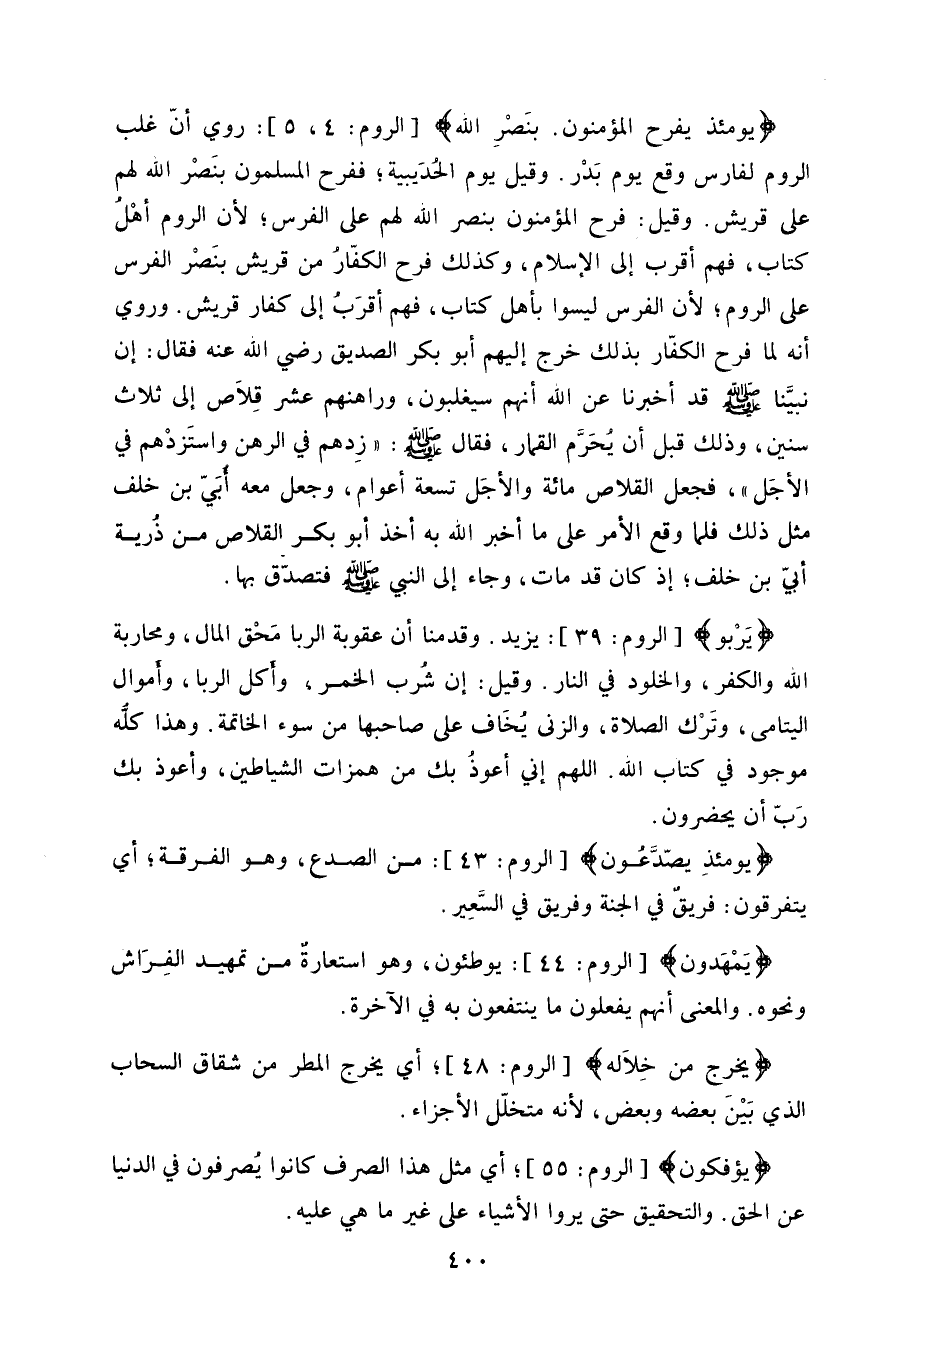 ﴿يومئذ يفرح المؤمنون. بنَصْرِ الله﴾ [الروم: ٤، ٥]: روي أنّ غلب
الروم لفارس وقع يوم بَدْر. وقيل يوم الحُدَيبية؛ ففرح المسلمون بنَصْر الله لهم
على قريش. وقيل: فرح المؤمنون بنصر الله لهم على الفرس؛ لأن الروم أهْلُ
كتاب، فهم أقرب إلى الإسلام، وكذلك فرح الكفّارُ من قريش بنَصْر الفرس
على الروم؛ لأن الفرس ليسوا بأهل كتاب، فهم أقرَبُ إلى كفار قريش. وروي
أنه لما فرح الكفّار بذلك خرج إليهم أبو بكر الصديق رضي الله عنه فقال: إن
نبيَّنا ﷺ قد أخبرنا عن الله أنهم سيغلبون، وراهنهم عشر قِلاَص إلى ثلاث
سنين، وذلك قبل أن يُحَرَّم القمار، فقال ﷺ: «زِدهم في الرهن واستَزدْهم في
الأجَل»، فجعل القلاص مائة والأجَل تسعة أعوام، وجعل معه أُبَيّ بن خلف
مثل ذلك فلما وقع الأمر على ما أخبر الله به أخذ أبو بكر القلاص من ذُرية
أبيّ بن خلف؛ إذ كان قد مات، وجاء إلى النبي ﷺ فتصدّق بها.
﴿يَرْبو﴾ [الروم: ٣٩]: يزيد. وقدمنا أن عقوبة الربا مَحْق المال، ومحاربة
الله والكفر، والخلود في النار. وقيل: إن شُرب الخمر، وأَكل الربا، وأموال
اليتامى، وتَرْك الصلاة، والزنى يُخَاف على صاحبها من سوء الخاتمة. وهذا كلُّه
موجود في كتاب الله. اللهم إني أعوذُ بك من همزات الشياطين، وأعوذ بك
رَبّ أن يحضرون.
﴿يومئذِ يصّدَّعُون﴾ [الروم: ٤٣]: من الصدع، وهو الفرقة؛ أي
يتفرقون: فريقٌ في الجنة وفريق في السَّعِير.
﴿يَمْهَدون﴾ [الروم: ٤٤]: يوطئون، وهو استعارةٌ من تمهيد الفِرَاش
ونحوه. والمعنى أنهم يفعلون ما ينتفعون به في الآخرة.
﴿يخرج من خِلاَله﴾ [الروم: ٤٨]؛ أي يخرج المطر من شقاق السحاب
الذي بَيْنَ بعضه وبعض، لأنه متخلّل الأجزاء.
﴿يؤفكون﴾ [الروم: ٥٥]؛ أي مثل هذا الصرف كانوا يُصرفون في الدنيا
عن الحق. والتحقيق حتى يروا الأشياء على غير ما هي عليه.
٤٠٠